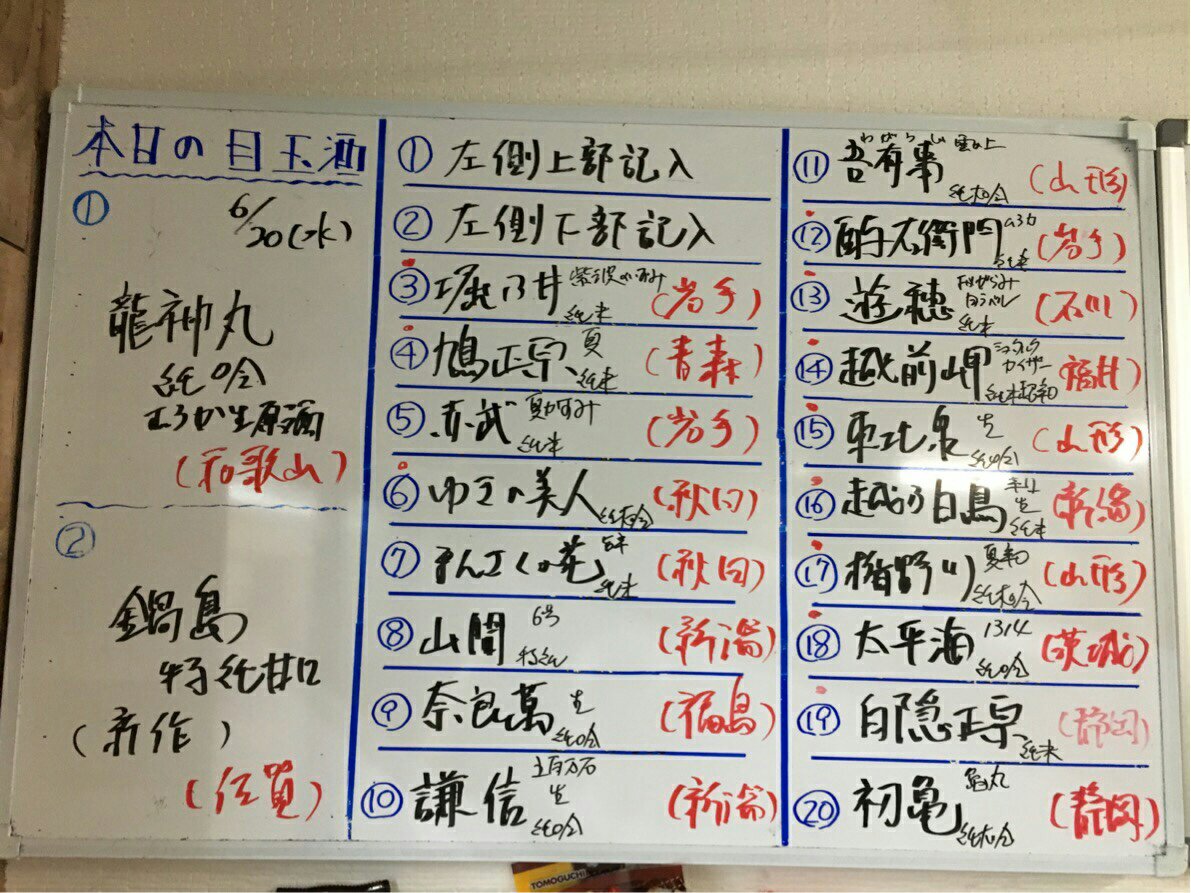 本日の目玉酒
①
6/20(水)
龍神丸
純吟
むろか生原酒
(和歌山)
②
鍋島
特純甘口
(新作)
(佐賀)
① 左側上部記入
② 左側下部記入
③ 堀の井 純米 (岩手)
④ 鳩正宗 夏 純米 (青森)
⑤ 赤武 夏かすみ 純米 (岩手)
⑥ ゆきの美人 純吟 (秋田)
⑦ まんさくの花 純米 (秋田)
⑧ 山間 6号 特純 (新潟)
⑨ 奈良萬 生 純吟 (福島)
⑩ 謙信 五百万石 生 純吟 (新潟)
⑪ 吾有事 わがうじ 雲の上 純吟 (山形)
⑫ 酉与右衛門 純米 (岩手)
⑬ 遊穂 純米 (石川)
⑭ 越前岬 (福井)
⑮ 東北泉 生 純吟 (山形)
⑯ 越の白鳥 生 純米 (新潟)
⑰ 楯野川 純大吟 (山形)
⑱ 太平海 1314 純吟 (茨城)
⑲ 白隠正宗 純米 (静岡)
⑳ 初亀 亀丸 純大吟 (静岡)
TOMOGUCHI